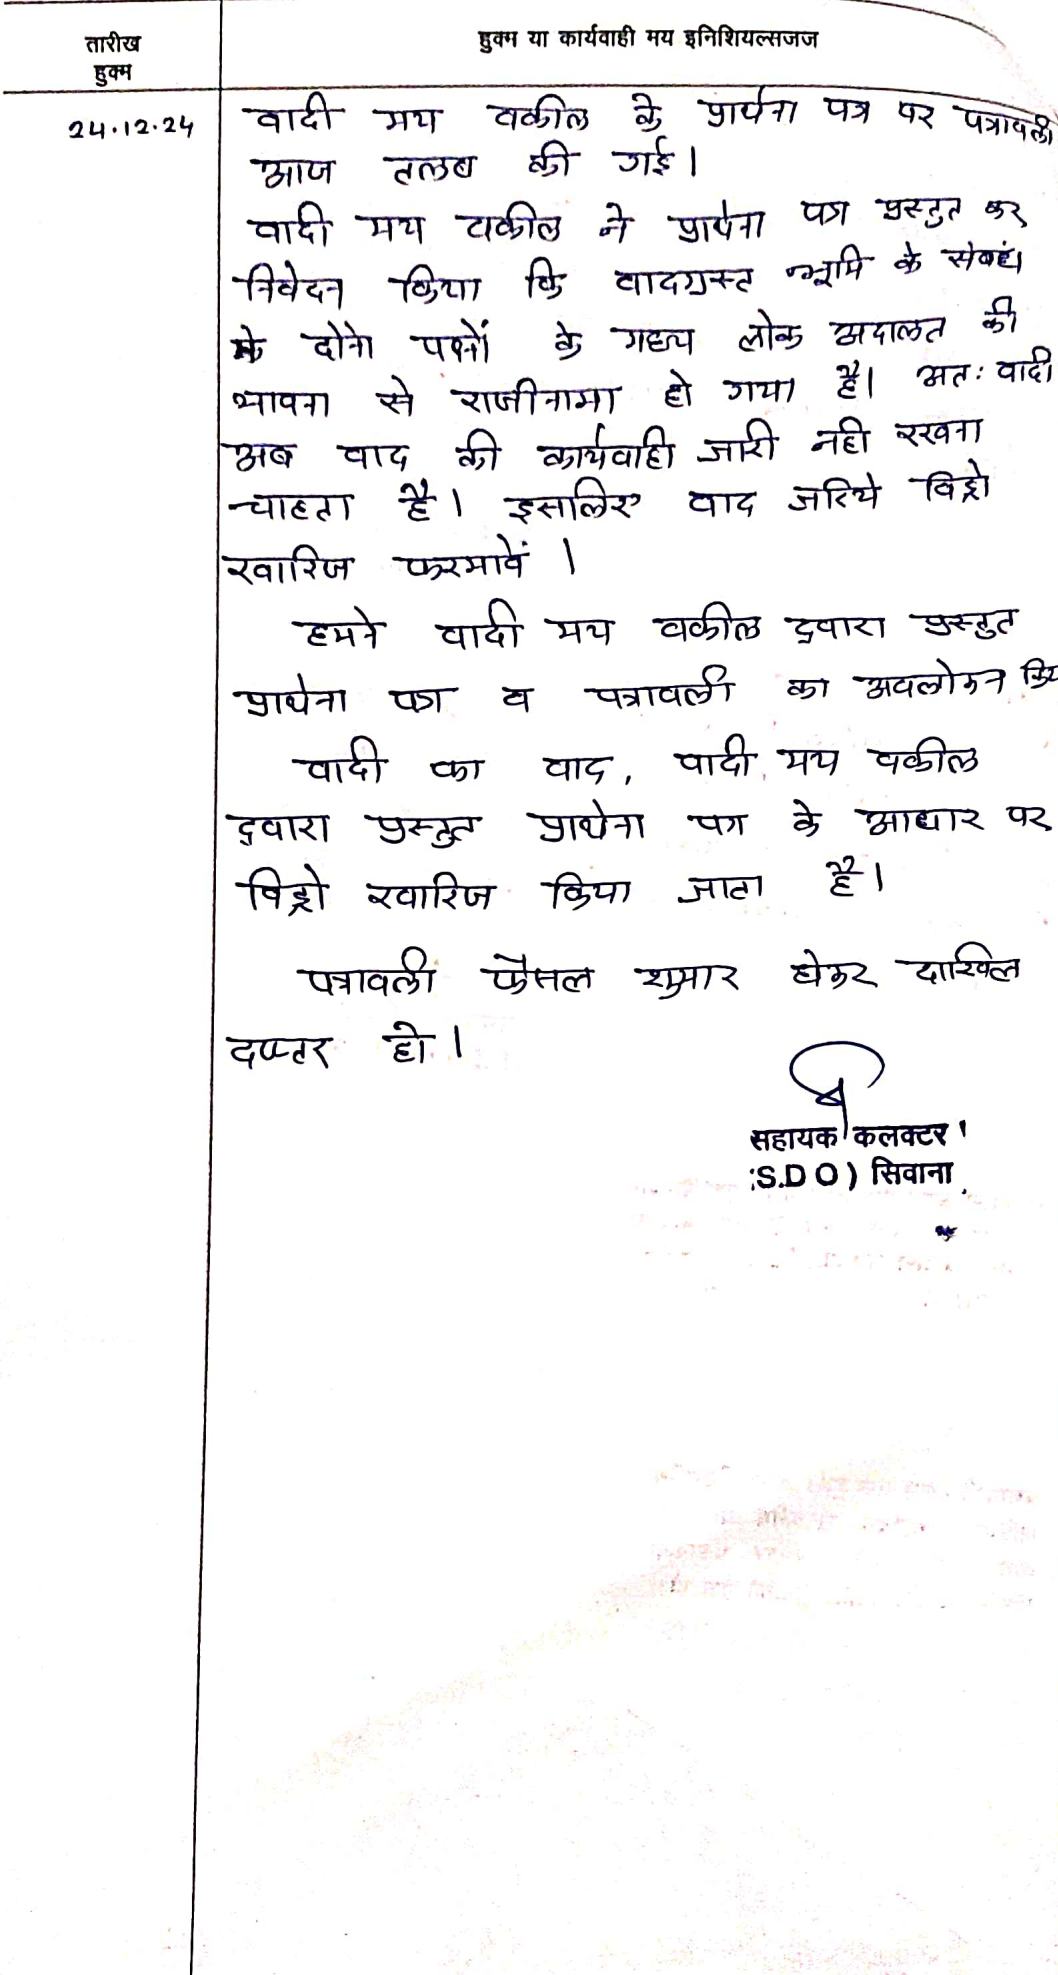 तारीख
हुक्म
हुक्म या कार्यवाही मय इनिशियल्सजज
24.12.24
वादी मय वकील के प्रार्थना पत्र पर पत्रावली
आज तलब की गई।
वादी मय वकील ने प्रार्थना पत्र प्रस्तुत कर
निवेदन किया कि वादग्रस्त भूमि के संबंध
में दोनो पक्षों के मध्य लोक अदालत की
भावना से राजीनामा हो गया है। अतः वादी
अब वाद की कार्यवाही जारी नही रखना
चाहता है। इसलिए वाद जरिये विड्रो
खारिज फरमावें।
हमने वादी मय वकील द्वारा प्रस्तुत
प्रार्थना पत्र व पत्रावली का अवलोकन
वादी का वाद, वादी मय वकील
द्वारा प्रस्तुत प्रार्थना पत्र के आधार पर
विड्रो खारिज किया जाता है।
पत्रावली फैसल शुमार होकर दाखिल
दफ्तर हो।
सहायक कलक्टर
(S.D O) सिवाना